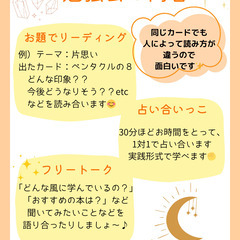 同じカードでも
人によって読み方が
違うので
面白いです✨
お題でリーディング
例）テーマ：片思い
出たカード：ペンタクルの８
どんな印象？？
今後どうなりそう？？etc
などを読み合います😊
占い合いっこ
30分ほどお時間をとって、
1対1で占い合います
実践形式で学べます😊
フリートーク
「どんな風に学んでいるの？」
「おすすめの本は？」など
聞いてみたいことなどを
語り合ったりしましょ～♪